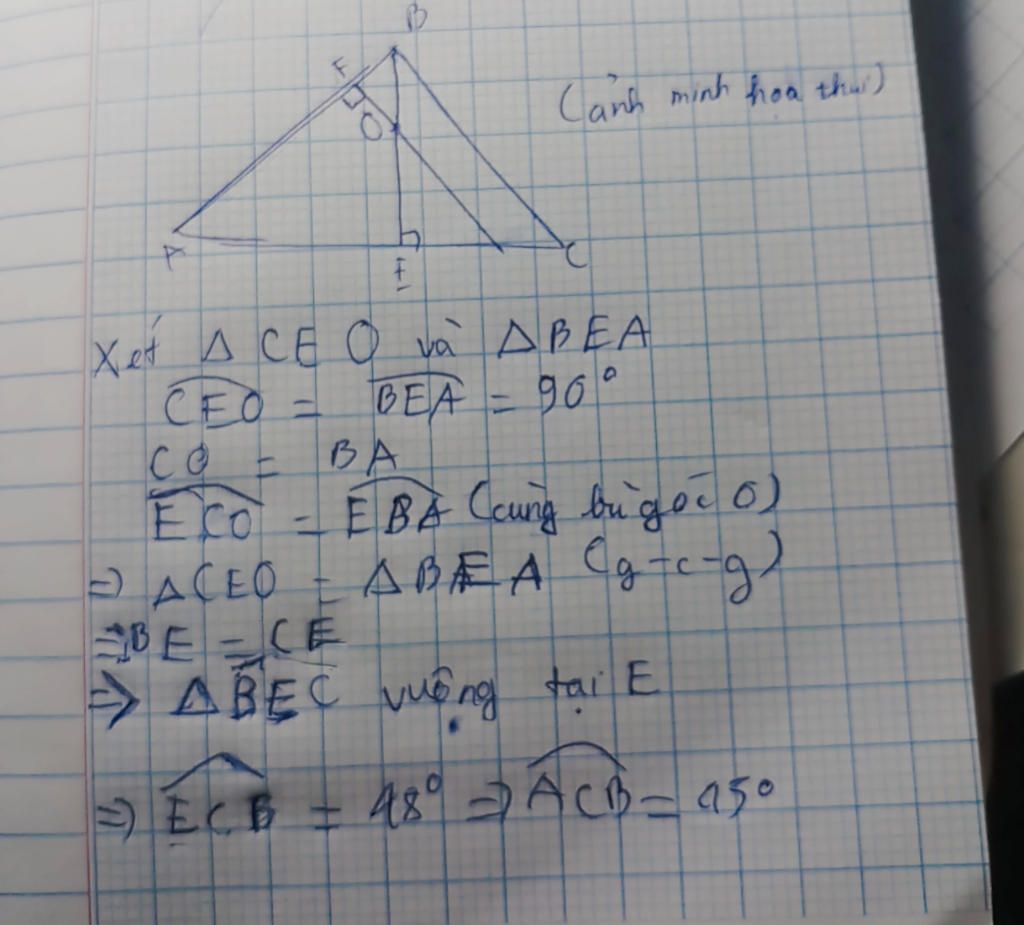 B
F
O
(ảnh minh họa thui)
A
E
C
Xét Δ CEO và Δ BEA
CEO = BEA = 90°
CO = BA
ECO = EBA (cùng bù góc O)
=> ΔCEO = ΔBEA (g-c-g)
=> BE = CE
=> Δ BEC vuông tại E
=> ECB = 48° => ACB = 45°